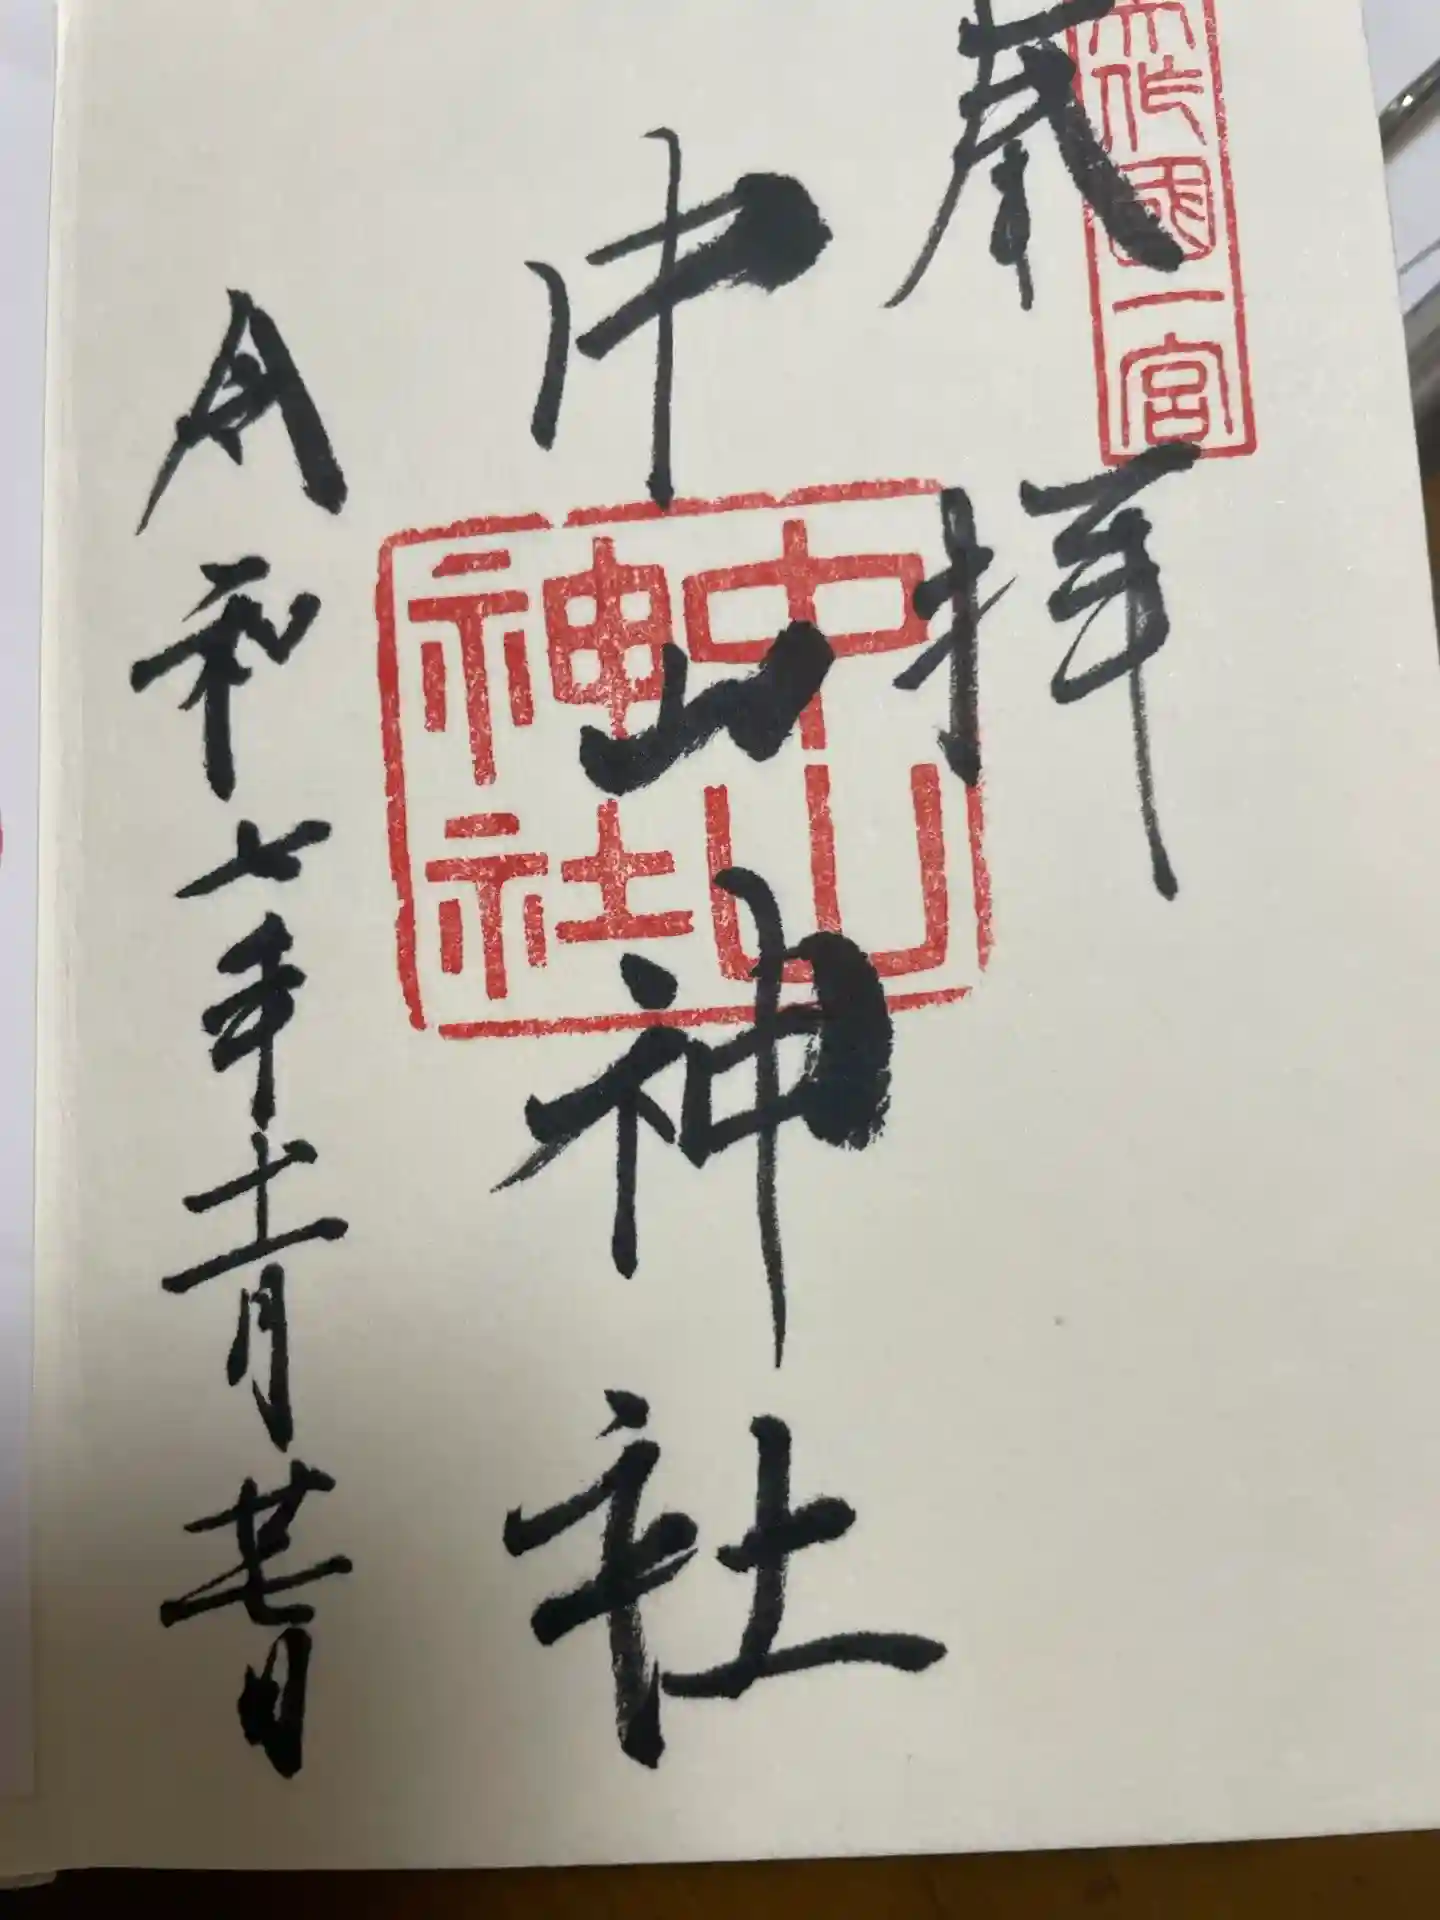 奉拝
美作國一宮
中山神社
中山神社
令和七年十一月廿七日